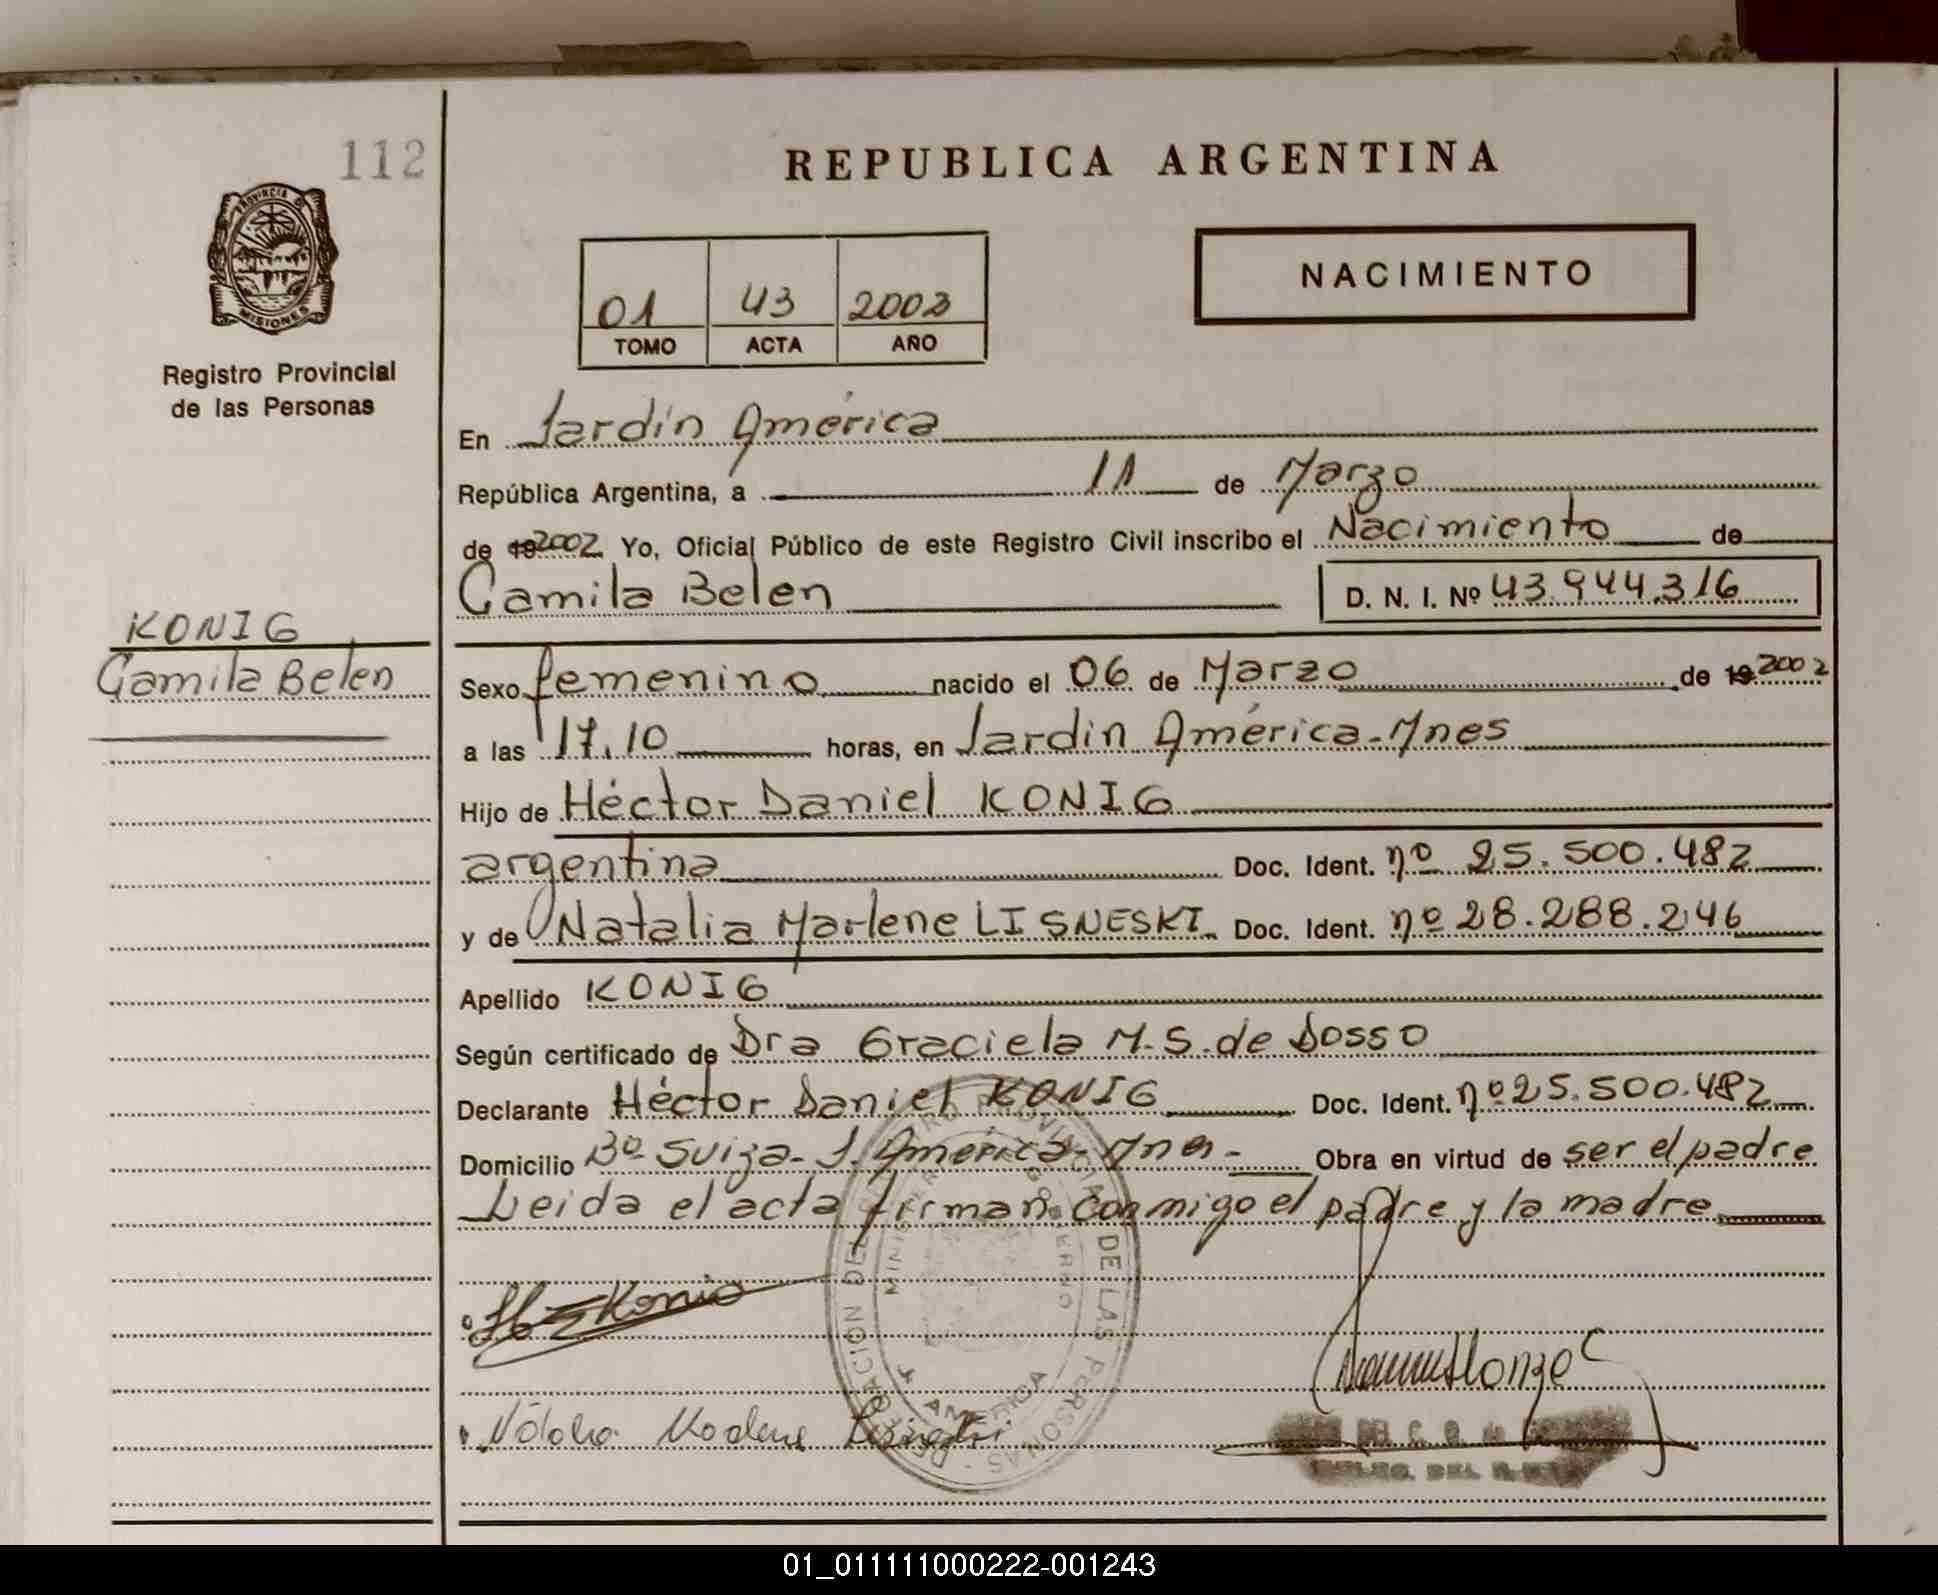 112
REPUBLICA ARGENTINA
PROVINCIA DE
MISIONES
Registro Provincial
de las Personas
01 43 2002
TOMO ACTA AÑO
NACIMIENTO
En Jardín América
República Argentina, a 11 de Marzo
de 19 2002 Yo, Oficial Público de este Registro Civil inscribo el Nacimiento de
Camila Belen D. N. I. Nº 43.944.316
KONIG
Camila Belen
Sexo femenino nacido el 06 de Marzo de 19 2002
a las 17.10 horas, en Jardín América - Mnes
Hijo de Héctor Daniel KONIG
argentina Doc. Ident. nº 25.500.482
y de Natalia Marlene LISNESKI Doc. Ident. nº 28.288.246
Apellido KONIG
Según certificado de Dra Graciela M. S. de Dosso
Declarante Héctor Daniel KONIG Doc. Ident. nº 25.500.482
Domicilio Bº Suiza - J. América - Mnes - Obra en virtud de ser el padre
Leida el acta firman conmigo el padre y la madre
DELEGACION DEL REGISTRO PROVINCIAL DE LAS PERSONAS
MINISTERIO DE GOBIERNO
J. AMERICA
Konig
01_011111000222-001243